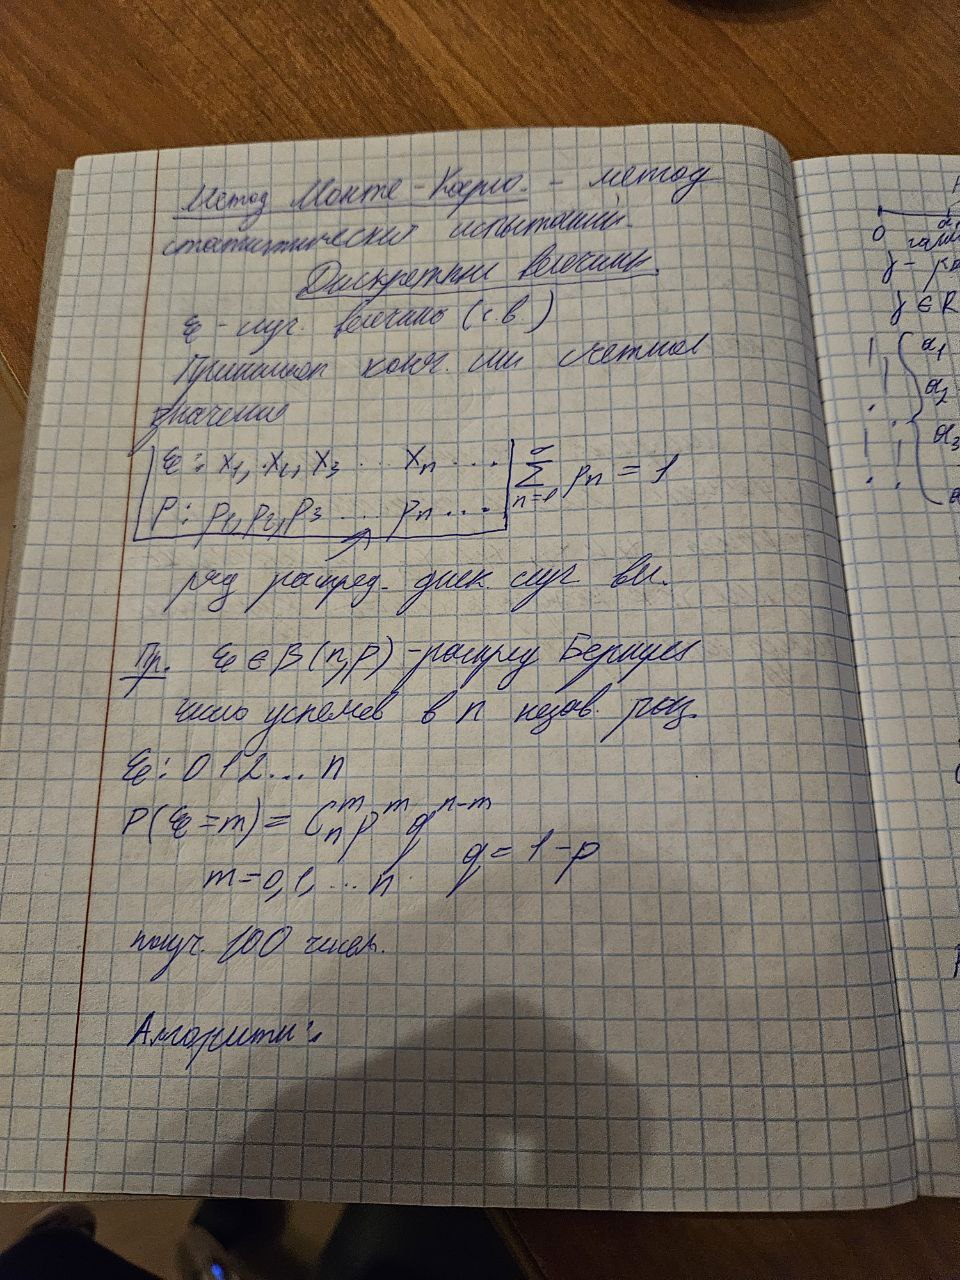 Метод Монте-Карло. - метод
статистических испытаний.
Дискретные величины.
ξ - случ. величина (с.в)
Принимает конч. или счетное
значение
ξ: x₁, x₂, x₃ ... xₙ ...
P: p₁, p₂, p₃ ... pₙ ...
∑ pₙ = 1
n=1
ряд распред. диск. случ. вел.
Пр. ξ ∈ B(n,p) - распред Бернули
число успехов в n незав.
ξ: 0 1 2 ... n
P(ξ=m) = Cₙᵐ pᵐ qⁿ⁻ᵐ
m=0,1, ... n q = 1-p
получ. 100 чисел.
Алгоритм:
0
γ -
γ ∈ R
α₁
α₂
α₃